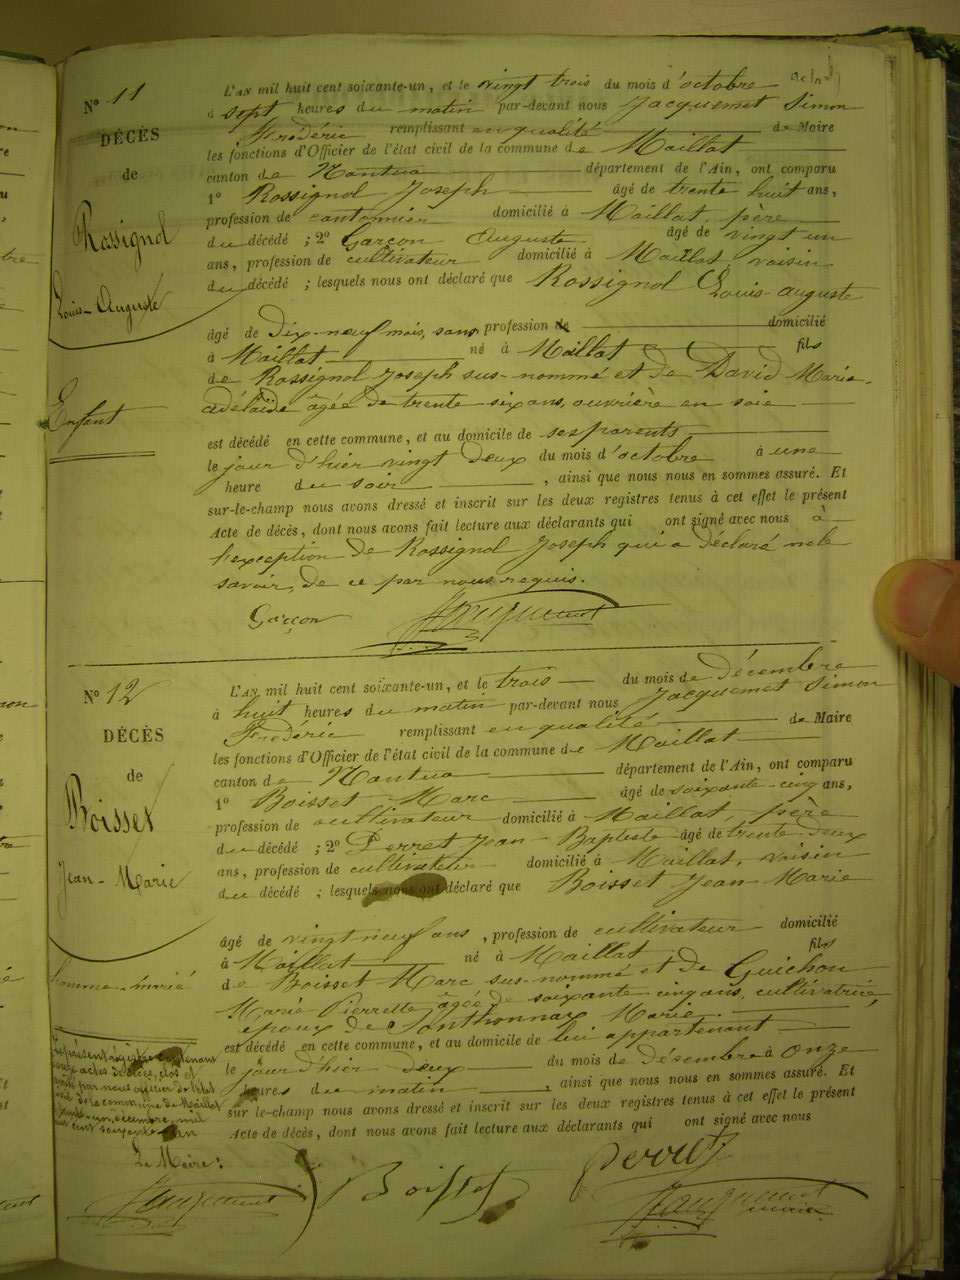 N° 11
DÉCÈS
de
Rossignol
Louis-Auguste
Enfant
L'AN mil huit cent soixante-un, et le vingt trois du mois d'octobre
à sept heures du matin par-devant nous Jacquemet Simon
Frédéric remplissant en qualité de Maire
les fonctions d'Officier de l'état civil de la commune de Maillat
canton de Nantua département de l'Ain, ont comparu
1° Rossignol Joseph âgé de trente huit ans,
profession de cantonnier domicilié à Maillat, père
du décédé ; 2° Garçon Auguste âgé de vingt un
ans, profession de cultivateur domicilié à Maillat voisin
du décédé ; lesquels nous ont déclaré que Rossignol Louis-auguste
âgé de Dix-neuf mois, sans profession de domicilié
à Maillat né à Maillat fils
de Rossignol Joseph sus-nommé et de David Marie-
adélaïde âgée de trente six ans, ouvrière en soie
est décédé en cette commune, et au domicile de ses parents
le jour d'hier vingt deux du mois d'octobre à une
heure du soir, ainsi que nous nous en sommes assuré. Et
sur-le-champ nous avons dressé et inscrit sur les deux registres tenus à cet effet le présent
Acte de décès, dont nous avons fait lecture aux déclarants qui ont signé avec nous à
l'exception de Rossignol Joseph qui a déclaré ne le
savoir, de ce par nous requis.
Garçon Jacquemet
N° 12
DÉCÈS
de
Boisset
Jean-Marie
homme marié
L'AN mil huit cent soixante-un, et le trois du mois de Décembre
à huit heures du matin par-devant nous Jacquemet Simon
Frédéric remplissant en qualité de Maire
les fonctions d'Officier de l'état civil de la commune de Maillat
canton de Nantua département de l'Ain, ont comparu
1° Boisset Marc âgé de soixante-cinq ans,
profession de cultivateur domicilié à Maillat, père
du décédé ; 2° Perret Jean-Baptiste âgé de trente-deux
ans, profession de cultivateur domicilié à Maillat, voisin
du décédé ; lesquels nous ont déclaré que Boisset Jean Marie
âgé de vingt neuf ans, profession de cultivateur domicilié
à Maillat né à Maillat fils
de Boisset Marc sus-nommé et de Guichon
Marie Pierrette âgée de soixante-cinq ans, cultivatrice,
époux de Marie
est décédé en cette commune, et au domicile de lui appartenant
le jour d'hier deux du mois de désembre à onze
heures du matin, ainsi que nous nous en sommes assuré. Et
sur le-champ nous avons dressé et inscrit sur les deux registres tenus à cet effet le présent
Acte de décès, dont nous avons fait lecture aux déclarants qui ont signé avec nous
présent registre contenant
actes clos et
par nous officier de l'état
de la commune de Maillat
un, décembre, mil
cent soixante
Le Maire :
Jacquemet Boisset Perret
Jacquemet
maire